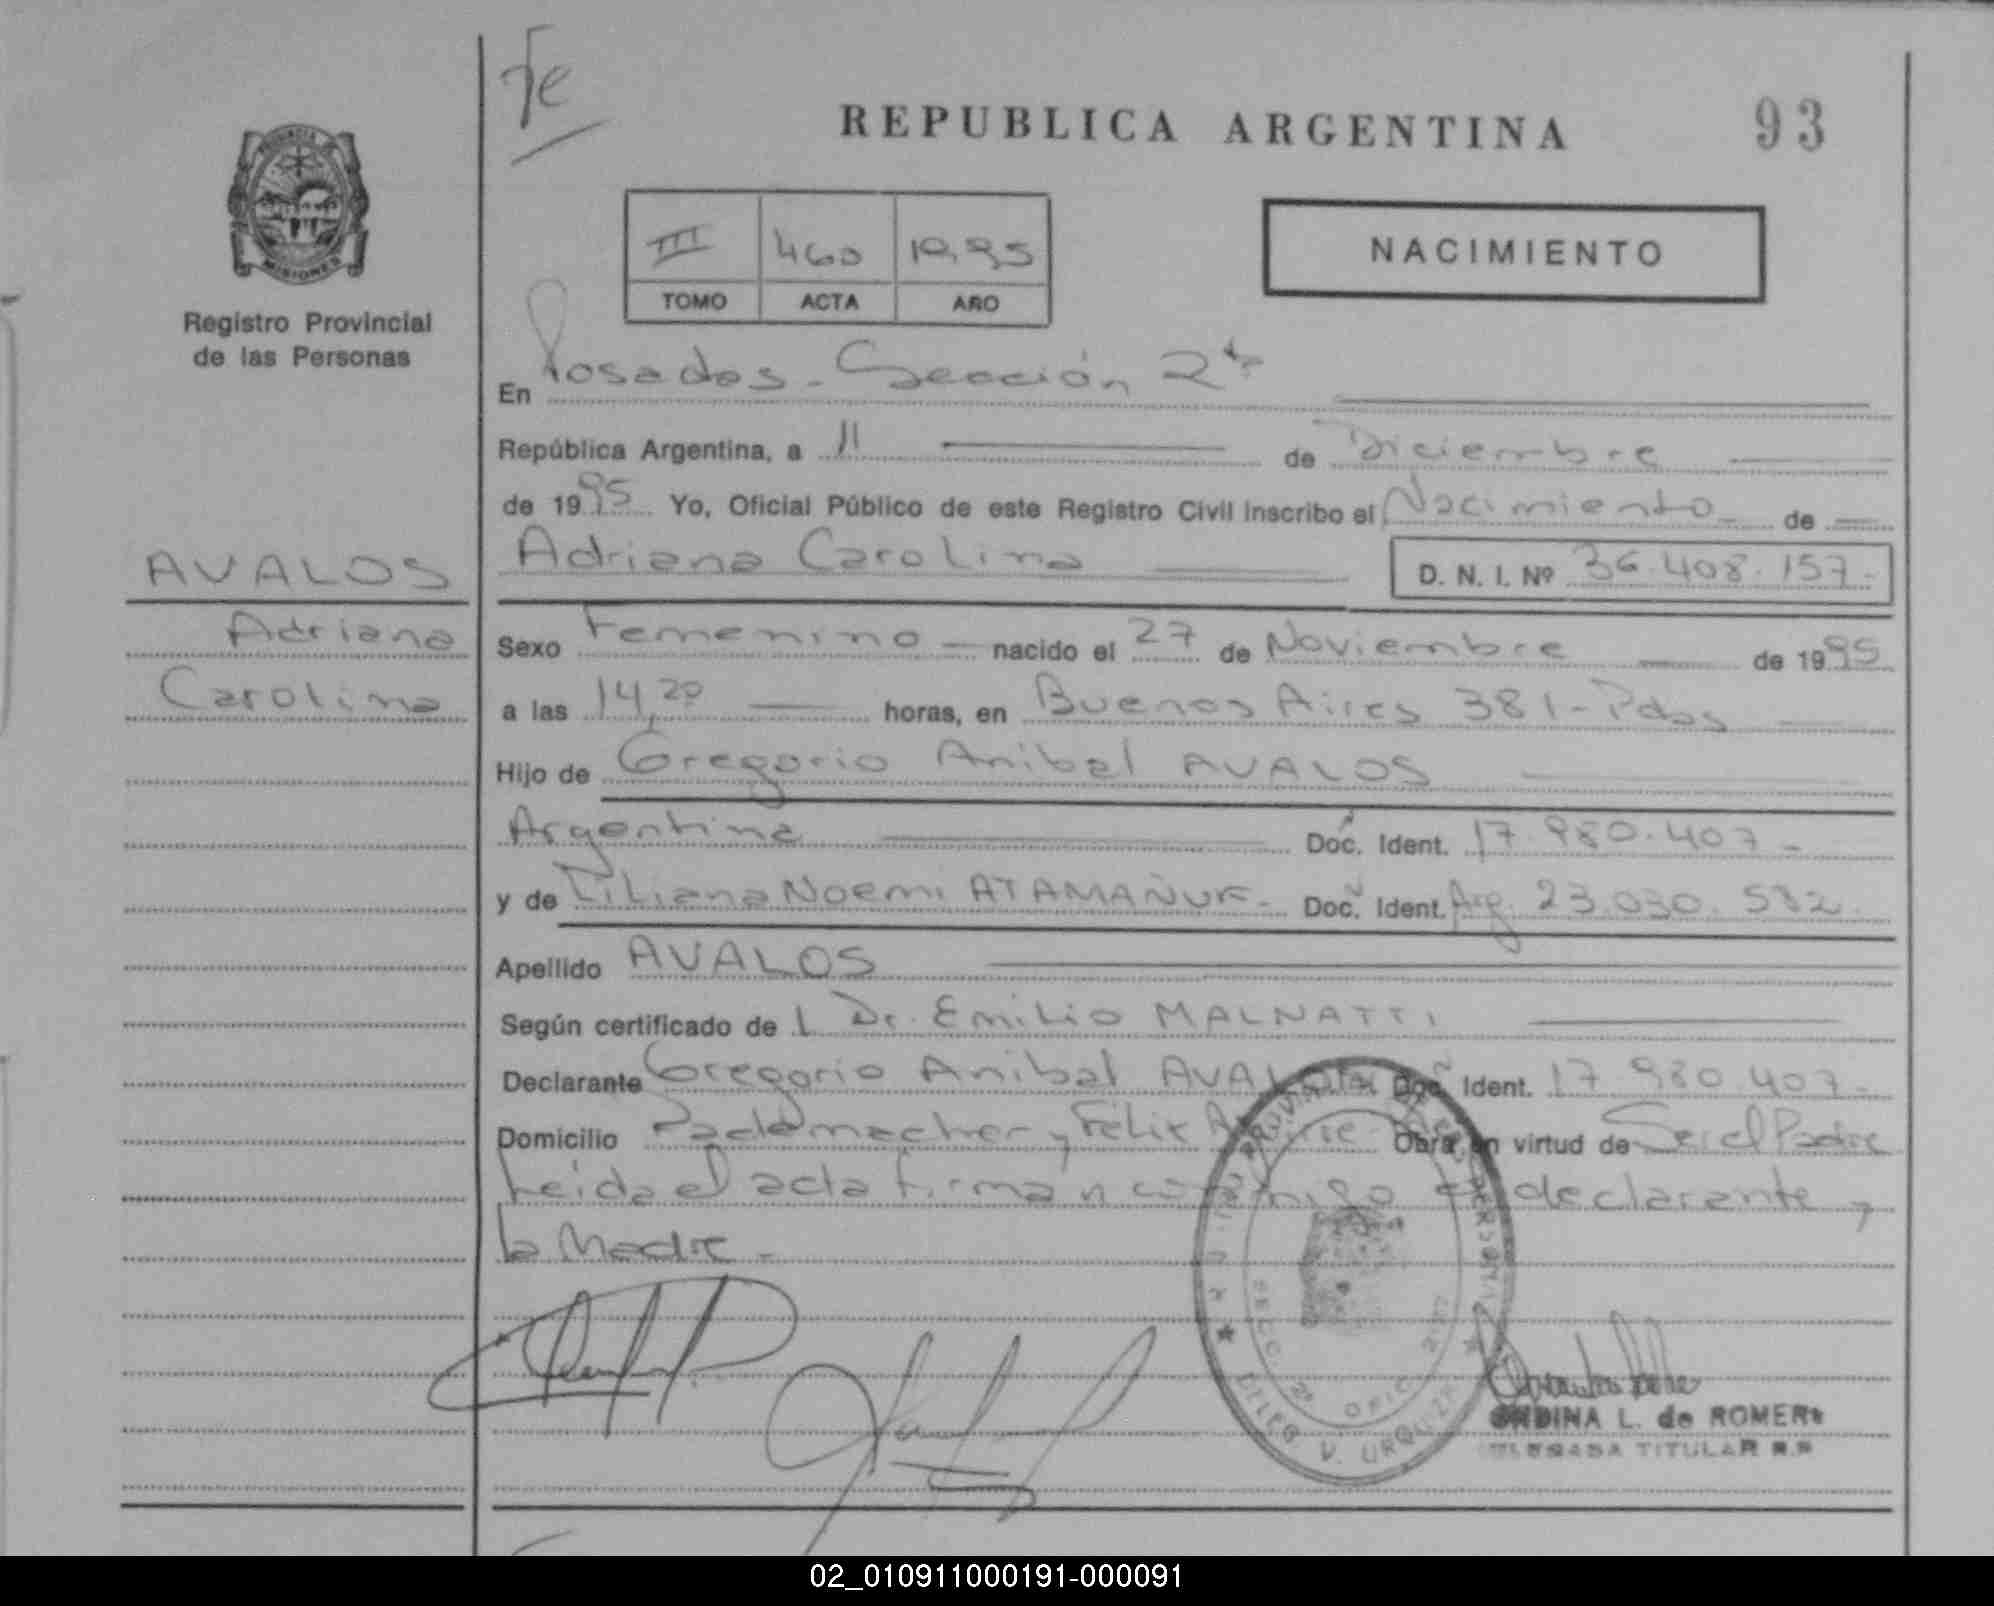 Fe
REPUBLICA ARGENTINA
93
PROVINCIA DE
MISIONES
Registro Provincial
de las Personas
III 460 1995
TOMO ACTA AÑO
NACIMIENTO
En Posadas - Sección 2da
República Argentina, a 11 de Diciembre
de 1995 Yo, Oficial Público de este Registro Civil inscribo el Nacimiento de
Adriana Carolina D. N. I. Nº 36.408.157-
AVALOS
Adriana
Carolina
Sexo Femenino nacido el 27 de Noviembre de 1995
a las 14,20 horas, en Buenos Aires 381 - Pdas
Hijo de Gregorio Anibal AVALOS
Argentina Doc. Ident. 17.980.407-
y de Liliana Noemi ATAMAÑUK- Doc. Ident. Arg. 23.030.582.
Apellido AVALOS
Según certificado de l Dr. Emilio MALNATTI
Declarante Gregorio Anibal AVALOS Doc. Ident. 17.980.407-
Domicilio y Felix Obra en virtud de Ser el Padre
Leida el acta firman conmigo el declarante y
la Madre -
SECC. 2ª OFIC.
DELEG V. URQUIZA
ONDINA L. de ROMERO
DELEGADA TITULAR R.P.
02_010911000191-000091